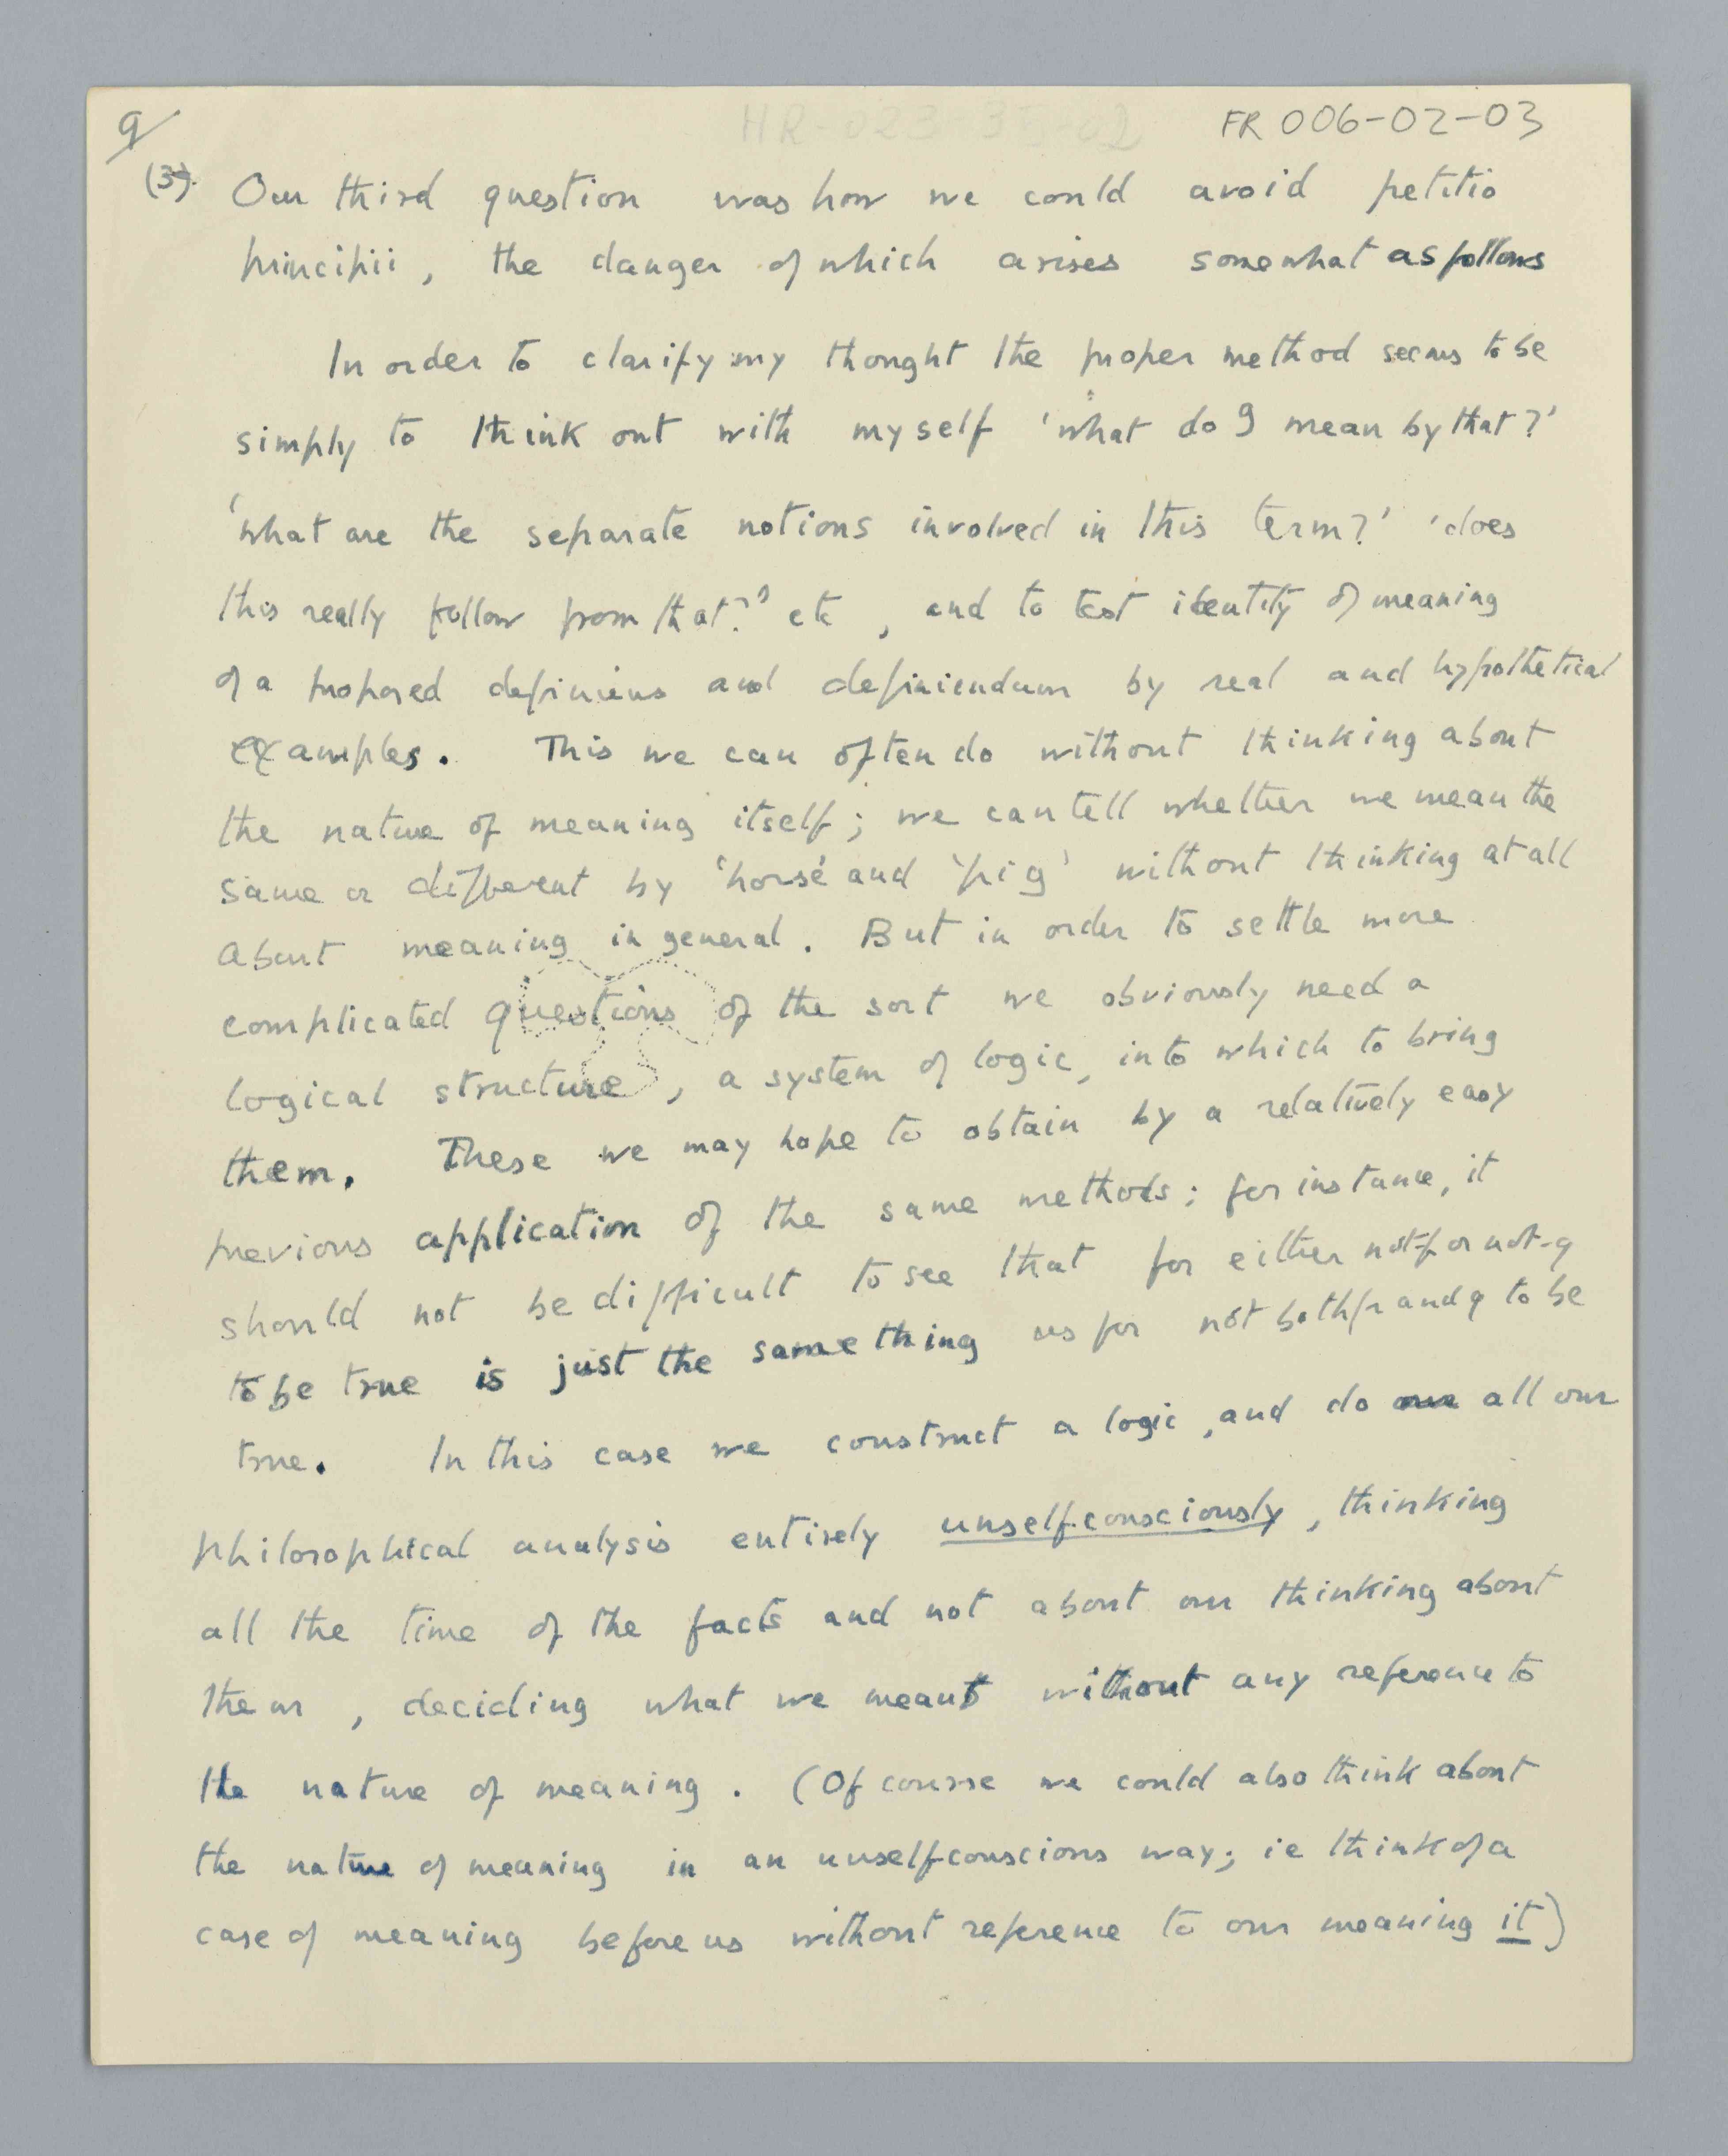 9
HR-023-35-02
FR 006-02-03
(3). Our third question was how we could avoid petitio
principii, the danger of which arises somewhat as follows
In order to clarify my thought the proper method seems to be
simply to think out with myself 'what do I mean by that?'
'what are the separate notions involved in this term?' 'does
this really follow from that?' etc, and to test identity of meaning
of a proposed definiens and definiendum by real and hypothetical
examples. This we can often do without thinking about
the nature of meaning itself; we can tell whether we mean the
same or different by 'horse' and 'pig' without thinking at all
about meaning in general. But in order to settle more
complicated questions of the sort we obviously need a
logical structure, a system of logic, into which to bring
them. These we may hope to obtain by a relatively easy
previous application of the same methods; for instance, it
should not be difficult to see that for either not-p or not-q
to be true is just the same thing as for not both p and q to be
true. In this case we construct a logic, and do all our
philosophical analysis entirely unselfconsciously, thinking
all the time of the facts and not about our thinking about
them, deciding what we meant without any reference to
the nature of meaning. (Of course we could also think about
the nature of meaning in an unselfconscious way; ie think of a
case of meaning before us without reference to our meaning it)